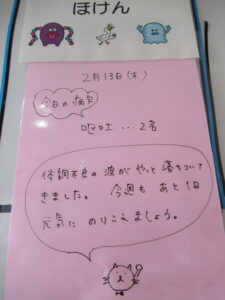 ほけん
2月13日(木)
今日の病欠
嘔吐…2名
体調不良の波がやっと落ちついて
きました。今週もあと1日
元気にのりこえましょう。